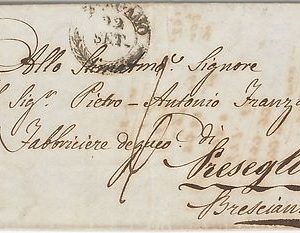 BERGAMO
22
SET.
Allo Stimatmo. Signore
Sigr. Pietro-Antonio Franz
Fabbriciere di
Presegl
Brescian